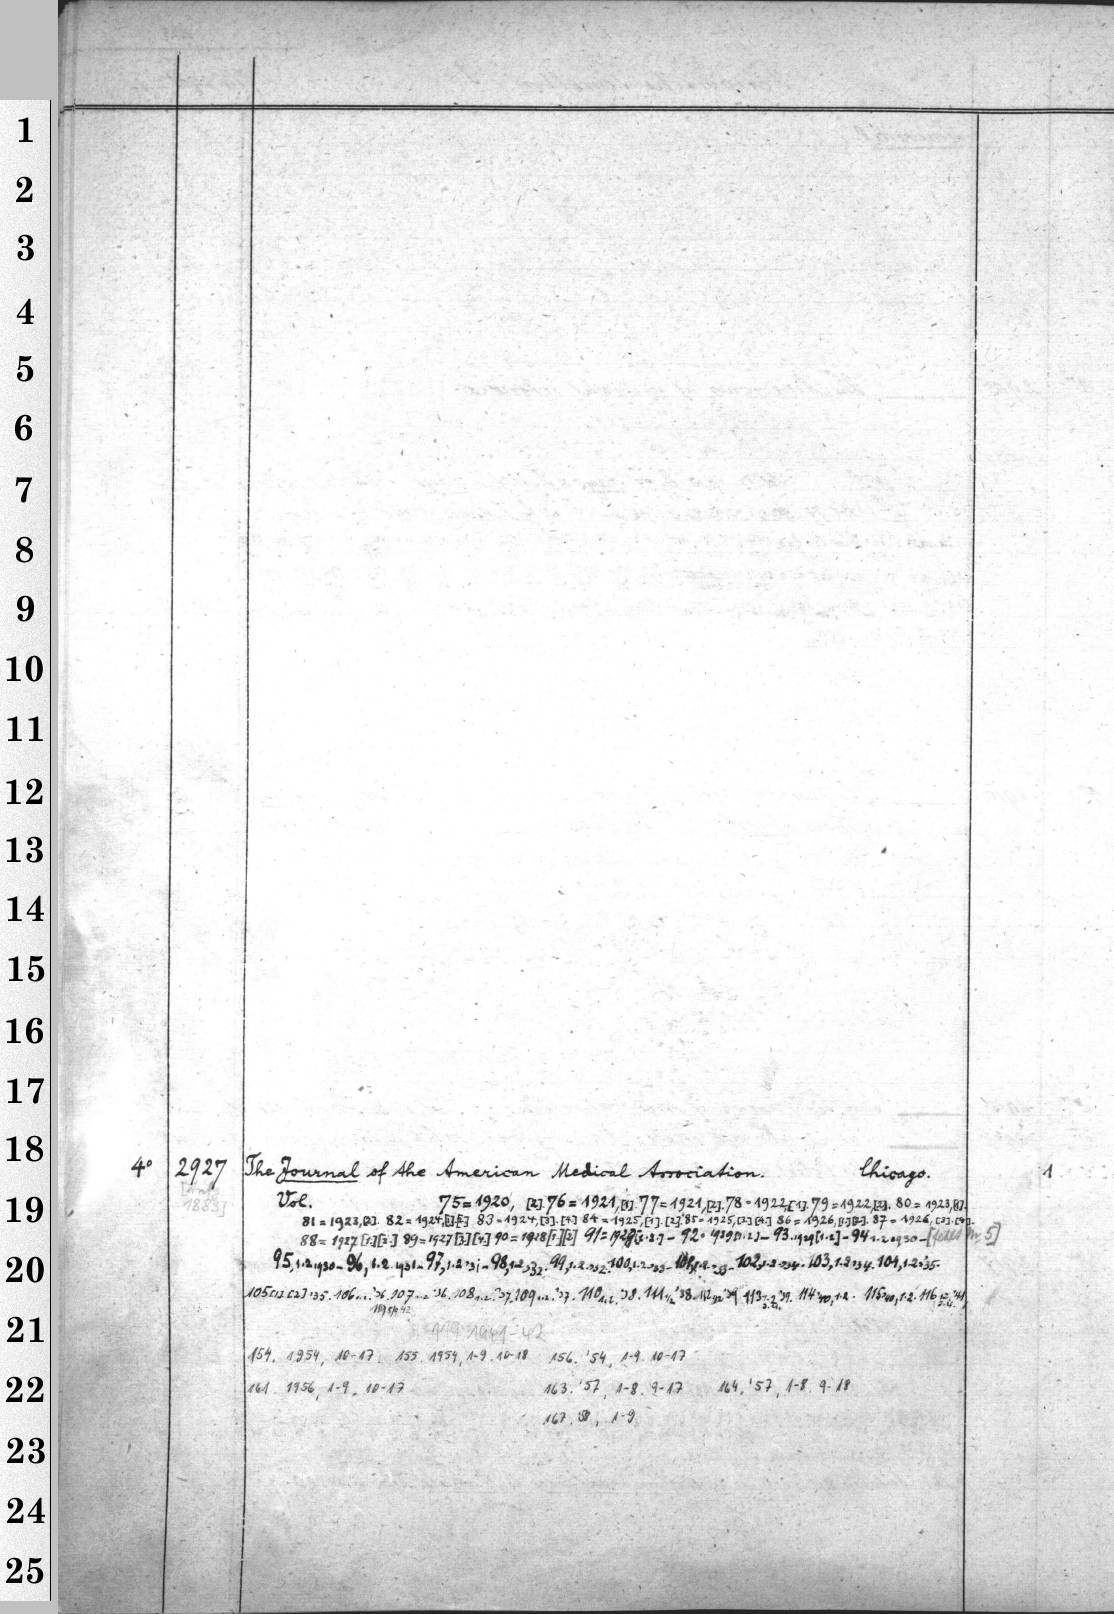 1
2
3
4
5
6
7
8
9
10
11
12
13
14
15
16
17
18
19
20
21
22
23
24
25
4° 2927 The Journal of the American Medical Association. Chicago. 1
Vol. 75=1920, [2]. 76=1921,[1]. 77=1921,[2]. 78=1922,[1]. 79=1922,[2]. 80=1923,[1].
1883]
81=1923,[2]. 82=1924,[1].[2] 83=1924,[3].[4] 84=1925,[1].[2]. 85=1925,[3].[4] 86=1926,[1].[2]. 87=1926,[3].[4].
88=1927[1][2.] 89=1927[3][4.] 90=1928[1][2] 91=1928[1.2.]- 92. 1929[1.2]- 93. 1929[1.2]- 94 1.2 1930-
95,1.2 1930- 96,1.2. 1931- 97,1.2 '31- 98,1.2,'32. 99,1.2. '32. 100,1.2.'33- 101,1.2 '33- 102,1.2 '34. 103,1.2 '34. 104,1.2 '35.
105 [1] [2] '35. 106 '36. 107 '36. 108 1.2. '37. 109 '37. 110 1.2. '38. 111 1/2 '38. 112 '39 113 '39. 114 '40, 1.2. 115 '40, 1.2. 116 '41,
119 1941-42
154. 1954, 10-17. 155. 1954, 1-9. 10-18 156. '54, 1-9. 10-17
161. 1956, 1-9. 10-17 163. '57, 1-8. 9-17 164. '57, 1-8. 9-18
167. 58, 1-9